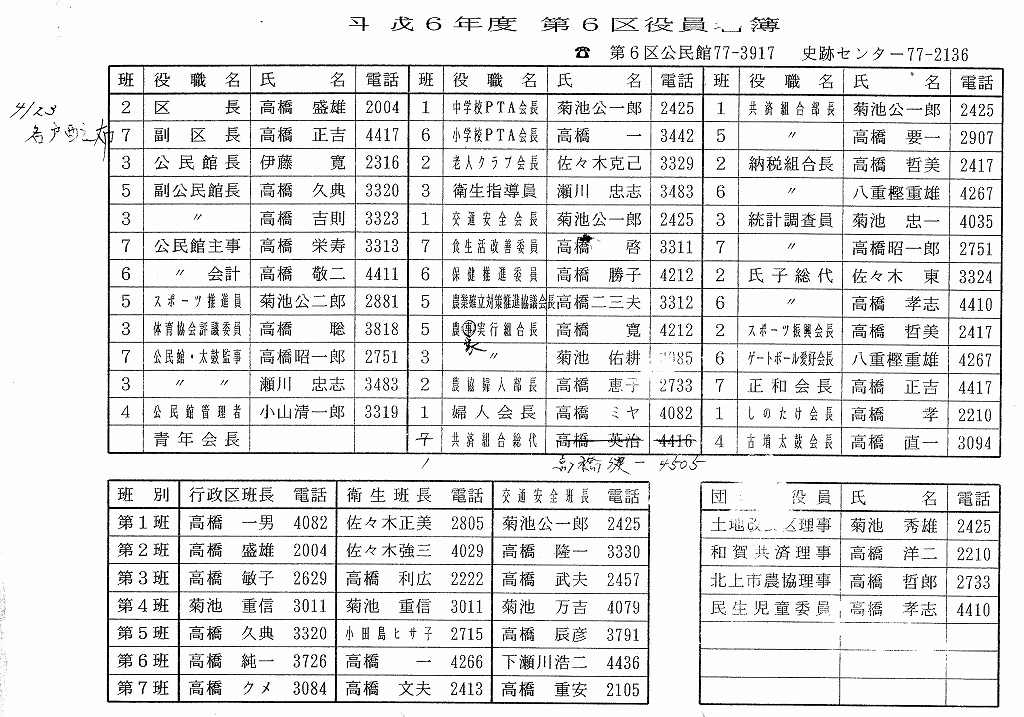 平成6年度 第6区役員名簿
☎ 第6区公民館77-3917 史跡センター77-2136
班 役職名 氏名 電話 班 役職名 氏名 電話 班 役職名 氏名 電話
4/23
2 区長 高橋 盛雄 2004 1 中学校PTA会長 菊池公一郎 2425 1 共済組合部長 菊池公一郎 2425
7 副区長 高橋 正吉 4417 6 小学校PTA会長 高橋 一 3442 5 〃 高橋 要一 2907
3 公民館長 伊藤 寛 2316 2 老人クラブ会長 佐々木克己 3329 2 納税組合長 高橋 哲美 2417
5 副公民館長 高橋 久典 3320 3 衛生指導員 瀬川 忠志 3483 6 〃 八重樫重雄 4267
3 〃 高橋 吉則 3323 1 交通安全会長 菊池公一郎 2425 3 統計調査員 菊池 忠一 4035
7 公民館主事 高橋 栄寿 3313 7 食生活改善委員 高橋 啓 3311 7 〃 高橋昭一郎 2751
6 〃 会計 高橋 敬二 4411 6 保健推進委員 高橋 勝子 4212 2 氏子総代 佐々木 東 3324
5 スポーツ推進員 菊池公二郎 2881 5 農業確立対策推進協議会長 高橋二三夫 3312 6 〃 高橋 孝志 4410
3 体育協会評議委員 高橋 聡 3818 5 農事実行組合長 高橋 寛 4212 2 スポーツ振興会長 高橋 哲美 2417
家
7 公民館・太鼓監事 高橋昭一郎 2751 3 〃 菊池 佑耕 085 6 ゲートボール愛好会長 八重樫重雄 4267
3 〃 〃 瀬川 忠志 3483 2 農協婦人部長 高橋 恵子 2733 7 正和会長 高橋 正吉 4417
4 公民館管理者 小山清一郎 3319 1 婦人会長 高橋 ミヤ 4082 1 しのたけ会長 高橋 孝 2210
青年会長 7 共済組合総代 高橋 英治 4416 4 古墳太鼓会長 高橋 直一 3094
1 高橋 一 4505
班別 行政区班長 電話 衛生班長 電話 交通安全班長 電話
第1班 高橋 一男 4082 佐々木正美 2805 菊池公一郎 2425
第2班 高橋 盛雄 2004 佐々木強三 4029 高橋 隆一 3330
第3班 高橋 敏子 2629 高橋 利広 2222 高橋 武夫 2457
第4班 菊池 重信 3011 菊池 重信 3011 菊池 万吉 4079
第5班 高橋 久典 3320 小田島ヒサ子 2715 高橋 辰彦 3791
第6班 高橋 純一 3726 高橋 一 4266 下瀬川浩二 4436
第7班 高橋 クメ 3084 高橋 文夫 2413 高橋 重安 2105
団 役員 氏名 電話
土地改 区理事 菊池 秀雄 2425
和賀共済理事 高橋 洋二 2210
北上市農協理事 高橋 哲郎 2733
民生児童委員 高橋 孝志 4410